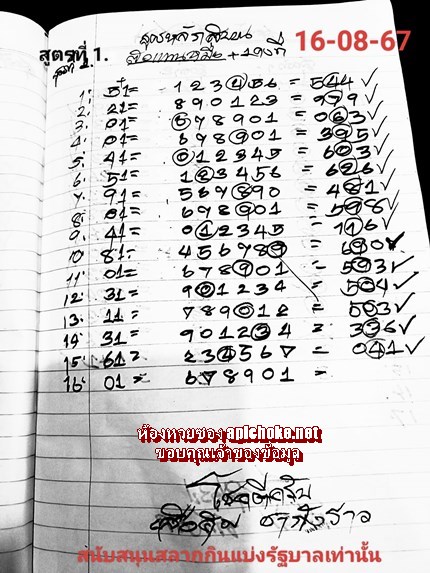 สูตรที่ 1.
16-08-67
1. 51= 123456 = 544 ✓
2. 21= 890123 = 979 ✓
3. 01= 678901 = 063 ✓
4. 01= 678901 = 395 ✓
5. 41= 012345 = 603 ✓
6. 51= 123456 = 626 ✓
7. 91= 567890 = 481 ✓
8. 01= 678901 = 598 ✓
9. 41= 012345 = 116 ✓
10. 81= 456789 = 690 ✓
11. 01= 678901 = 593 ✓
12. 31= 901234 = 504 ✓
13. 11= 789012 = 503 ✓
14. 31= 901234 = 336 ✓
15. 61= 234567 = 041 ✓
16. 01= 678901 =
ห้องหวยซอง aplchoke.net
ขอบคุณเจ้าของข้อมูล
โชคดีครับ
สนับสนุนสลากกินแบ่งรัฐบาลเท่านั้น